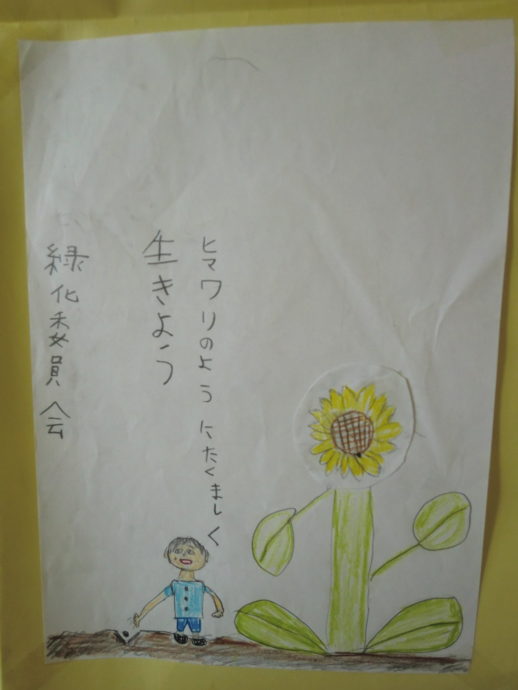 ヒマワリのようにたくましく
生きよう
緑化委員会